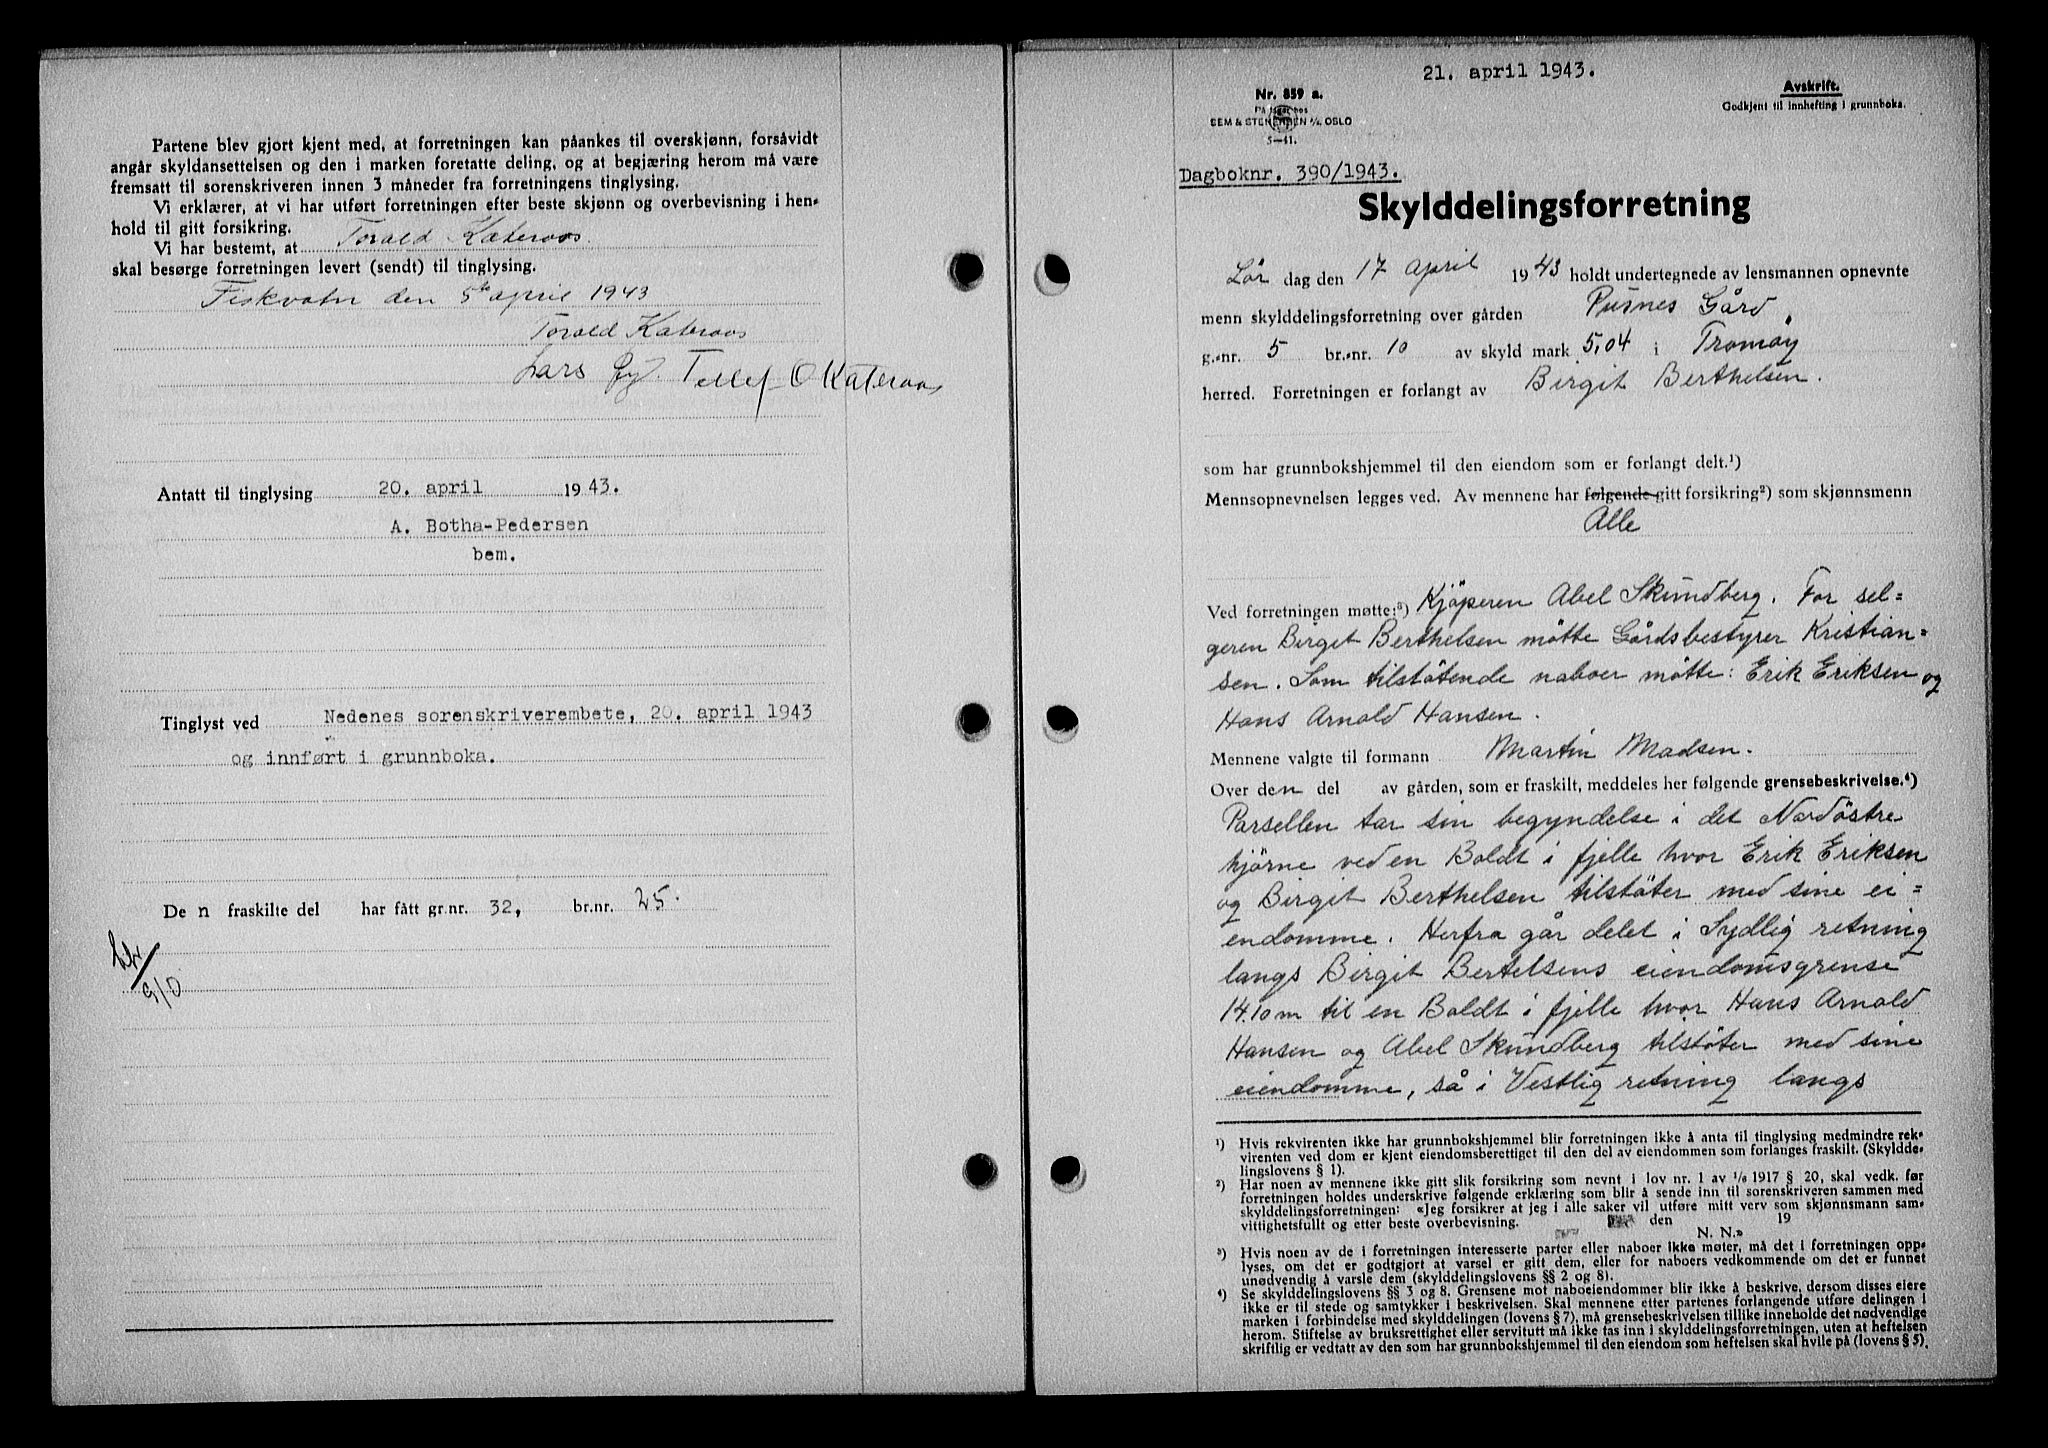 Partene blev gjort kjent med, at forretningen kan påankes til overskjønn, forsåvidt
angår skyldansettelsen og den i marken foretatte deling, og at begjæring herom må være
fremsatt til sorenskriveren innen 3 måneder fra forretningens tinglysing.
Vi erklærer, at vi har utført forretningen efter beste skjønn og overbevisning i hen-
hold til gitt forsikring.
Vi har bestemt, at Torald Kateraas
skal besørge forretningen levert (sendt) til tinglysing.
Fiskvatn den 5te april 1943
Torald Kateraas
Lars Tellef O Kateraas
Antatt til tinglysing 20. april 1943.
A. Botha-Pedersen
bem.
Tinglyst ved Nedenes sorenskriverembete, 20. april 1943
og innført i grunnboka.
De n fraskilte del har fått gr.nr. 32, br.nr. 25.
21. april 1943.
Nr. 859 a.
På lager hos
SEM & STENERSEN A/S OSLO
5-41.
Avskrift.
Godkjent til innhefting i grunnboka.
Dagboknr. 390/1943.
Skylddelingsforretning
Lør dag den 17 april 1943 holdt undertegnede av lensmannen opnevnte
menn skylddelingsforretning over gården Pusnes Gård
g.-nr. 5 br.-nr. 10 av skyld mark 5,04 i Tromøy
herred. Forretningen er forlangt av Birgit Berthelsen.
som har grunnbokshjemmel til den eiendom som er forlangt delt.¹)
Mennsopnevnelsen legges ved. Av mennene har følgende gitt forsikring²) som skjønnsmenn
Alle
Ved forretningen møtte:³) Kjöperen Abel Skundberg. For sel-
geren Birget Berthelsen mötte Gårdsbestyrer Kristian-
sen. Som tilstötende naboer mötte: Erik Eriksen og
Hans Arnold Hansen.
Mennene valgte til formann Martin Madsen.
Over den del av gården, som er fraskilt, meddeles her følgende grensebeskrivelse.⁴)
Parsellen tar sin begyndelse i det Nordöstre
hjörne ved en Boldt i fjelle hvor Erik Eriksen
og Birgit Berthelsen tilstöter med sine ei-
endomme. Herfra går delet i Sydlig retning
langs Birgit Bertelsens eiendomsgrense
14.10 m til en Boldt i fjelle hvor Hans Arnold
Hansen og Abel Skundberg tilstöter med sine
eiendomme, så i Vestlig retning langs
¹) Hvis rekvirenten ikke har grunnbokshjemmel blir forretningen ikke å anta til tinglysing medmindre rek-
virenten ved dom er kjent eiendomsberettiget til den del av eiendommen som forlanges fraskilt. (Skyldde-
lingslovens § 1).
²) Har noen av mennene ikke gitt slik forsikring som nevnt i lov nr. 1 av 1/6 1917 § 20, skal vedk. før
forretningen holdes underskrive følgende erklæring som blir å sende inn til sorenskriveren sammen med
skylddelingsforretningen: «Jeg forsikrer at jeg i alle saker vil utføre mitt verv som skjønnsmann sam-
vittighetsfullt og etter beste overbevisning. den 19
N. N.»
³) Hvis noen av de i forretningen interesserte parter eller naboer ikke møter, må det i forretningen opp-
lyses, om det er godtgjort at varsel er gitt dem, eller for naboers vedkommende om det er funnet
unødvendig å varsle dem (skylddelingslovens §§ 2 og 8).
⁴) Se skylddelingslovens §§ 3 og 8. Grensene mot naboeiendommer blir ikke å beskrive, dersom disses eiere
ikke er til stede og samtykker i beskrivelsen. Skal mennene etter partenes forlangende utføre delingen i
marken i forbindelse med skylddelingen (lovens § 7), må grensebeskrivelsen tillike inneholde det nødvendige
herom. Stiftelse av bruksrettighet eller servitutt må ikke tas inn i skylddelingsforretningen, uten at heftelsen
skriftlig er vedtatt av den som har grunnbokshjemmel til den eiendom som heftelsen skal hvile på (lovens § 5).